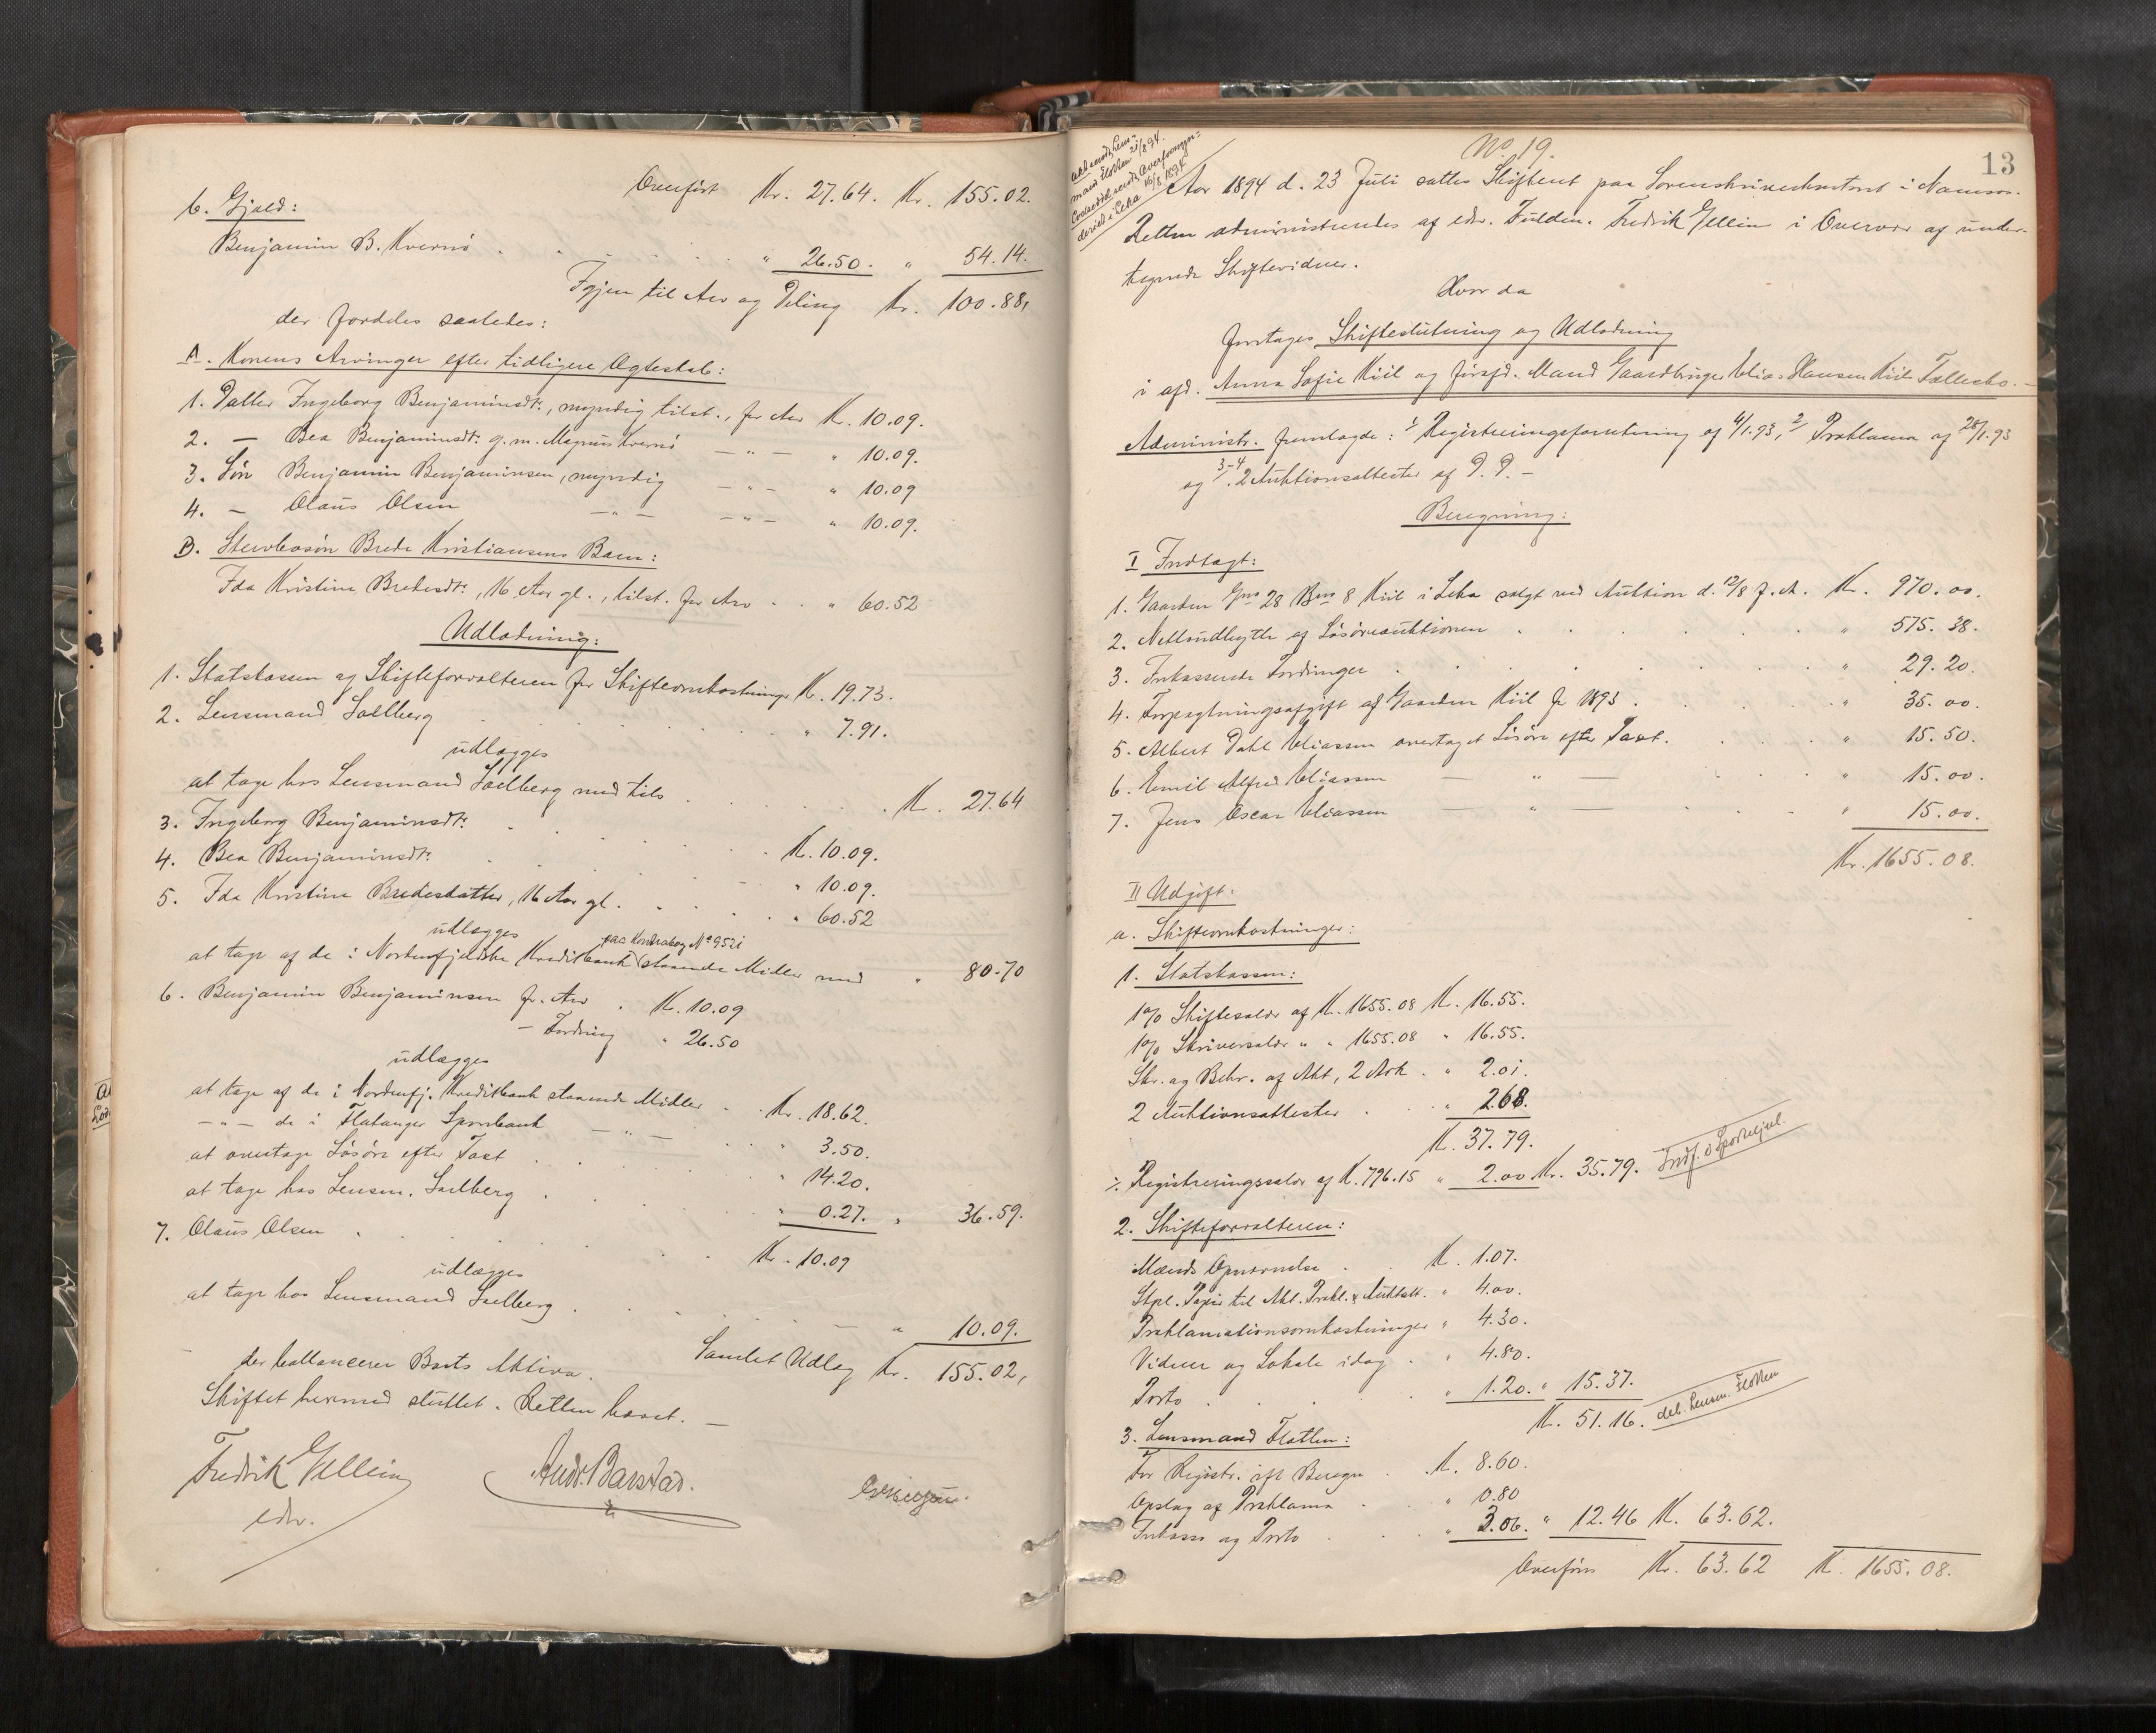 Overført Kr. 27.64. Kr. 155.02.
b. Gjæld:
Benjamin B. Kvernø . . . . " 26.50. " 54.14.
Igjen til Arv og Deling Kr. 100.88,
der fordeles saaledes:
A. Konens Arvinger efter tidligere Ægteskab:
1. Datter Ingeborg Benjaminsdtr, myndig tilst., for Arv Kr. 10.09.
2. — Bea Benjaminsdtr g. m. Magnus Kvernø — " — " 10.09.
3. Søn Benjamin Benjaminsen, myndig — " — " 10.09
4. — Olaus Olsen — " — — " — " 10.09.
B. Stervbosøn Brede Kristiansens Barn:
Ida Kristine Bredesdtr, 16 Aar gl., tilst. for Arv . . " 60.52
Udlodning:
1. Statskassen og Skifteforvalteren for Skifteomkostninger Kr. 19.73.
2. Lensmand Sælberg . . . . " 7.91.
udlægges
at tage hos Lensmand Sælberg med tils. . . . Kr. 27.64
3. Ingeborg Benjaminsdtr . . . . Kr. 10.09.
4. Bea Benjaminsdtr . . . . " 10.09.
5. Ida Kristine Bredesdatter, 16 Aar gl. . . . " 60.52
udlægges
paa Kontrabog No 952i
at tage af de i Nordenfjeldske Kreditbank staaende Midler med " 80.70
6. Benjamin Benjaminsen for Arv . Kr. 10.09
— Fordring " 26.50
udlægges
at tage af de i Nordenfj. Kreditbank staaende Midler . . Kr. 18.62.
— " — de i Flatanger Sparebank — " — . . " 3.50.
at overtage Løsøre efter Taxt . . . " 14.20.
at tage hos Lensm. Sælberg . . . " 0.27. " 36.59.
7. Olaus Olsen . . . . Kr. 10.09
udlægges
at tage hos Lensmand Sælberg . . . . " 10.09.
Samlet Udlæg Kr. 155.02,
der ballancerer Boets Aktiva.
Skiftet hermed sluttet. Retten hævet. —
Fredrik Gellein
edv.
Andr. Barstad.
13
No 19.
mand Flotten 21/8 94.
16/8 1894
Aar 1894 d. 23 Juli sattes Skifteret paa Sorenskriverkontoret i Namsos.
Retten administreredes af edv. Fuldm. Fredrik Gellein i Overvær af under-
tegnede Skiftevidner.
Hvor da
foretages Skifteslutning og Udlodning
i afd. Anna Sofie Kiil og førafd. Mand Gaardbruger Elias Hansen Kiils Fællesbo. —
Administr. fremlagde: 1/ Registreringsforretning af 4/1.93, 2/ Proklama af 28/1.93
og 3-4/. 2 Auktionsattester af D. D. —
Beregning:
I Indtægt:
1. Gaarden Gno 28 Bno 8 Kiil i Leka solgt ved Auktion d. 12/8 f. A. Kr. 970.00.
2. Nettoudbytte af Løsøreauktionen . . . . " 575.38.
3. Inkasserede Fordringer . . . . " 29.20.
4. Forpagtningsafgift af Gaarden Kiil for 1893 . . . " 35.00.
5. Albert Dahl Eliassen overtaget Løsøre efter Taxt. . . " 15.50.
6. Emil Alfred Eliassen — " — . . " 15.00.
7. Jens Oscar Eliassen — " — . . " 15.00.
Kr. 1655.08.
II Udgift:
a. Skifteomkostninger:
1. Statskassen:
1% Skiftesalær af Kr. 1655.08 Kr. 16.55.
1% Skriversalær " " 1655.08 " 16.55.
Skr. og Behr. af Akt, 2 Ark . " 2.01.
2 Auktionsattester . . " 2.68.
Kr. 37.79.
÷ Registreringssalær af Kr. 796.15 " 2.00 Kr. 35.79. Indf. i Sporteljnl.
2. Skifteforvalteren:
Mænds Opnævnelse . . Kr. 1.07.
Stpl. Papir til Akt. Prokl. & Auktatt. " 4.00.
Proklamationsomkostninger " 4.30.
Vidner og Lokale idag . . " 4.80.
Porto . . . " 1.20. " 15.37.
Kr. 51.16. deb. Lensm. Flotten
3. Lensmand Flotten:
For Registr. ifl. Beregn . . Kr. 8.60.
Opslag af Proklama . . " 0.80
Inkasso og Porto . . . " 3.06. " 12.46 Kr. 63.62.
Overføres Kr. 63.62 Kr. 1655.08.